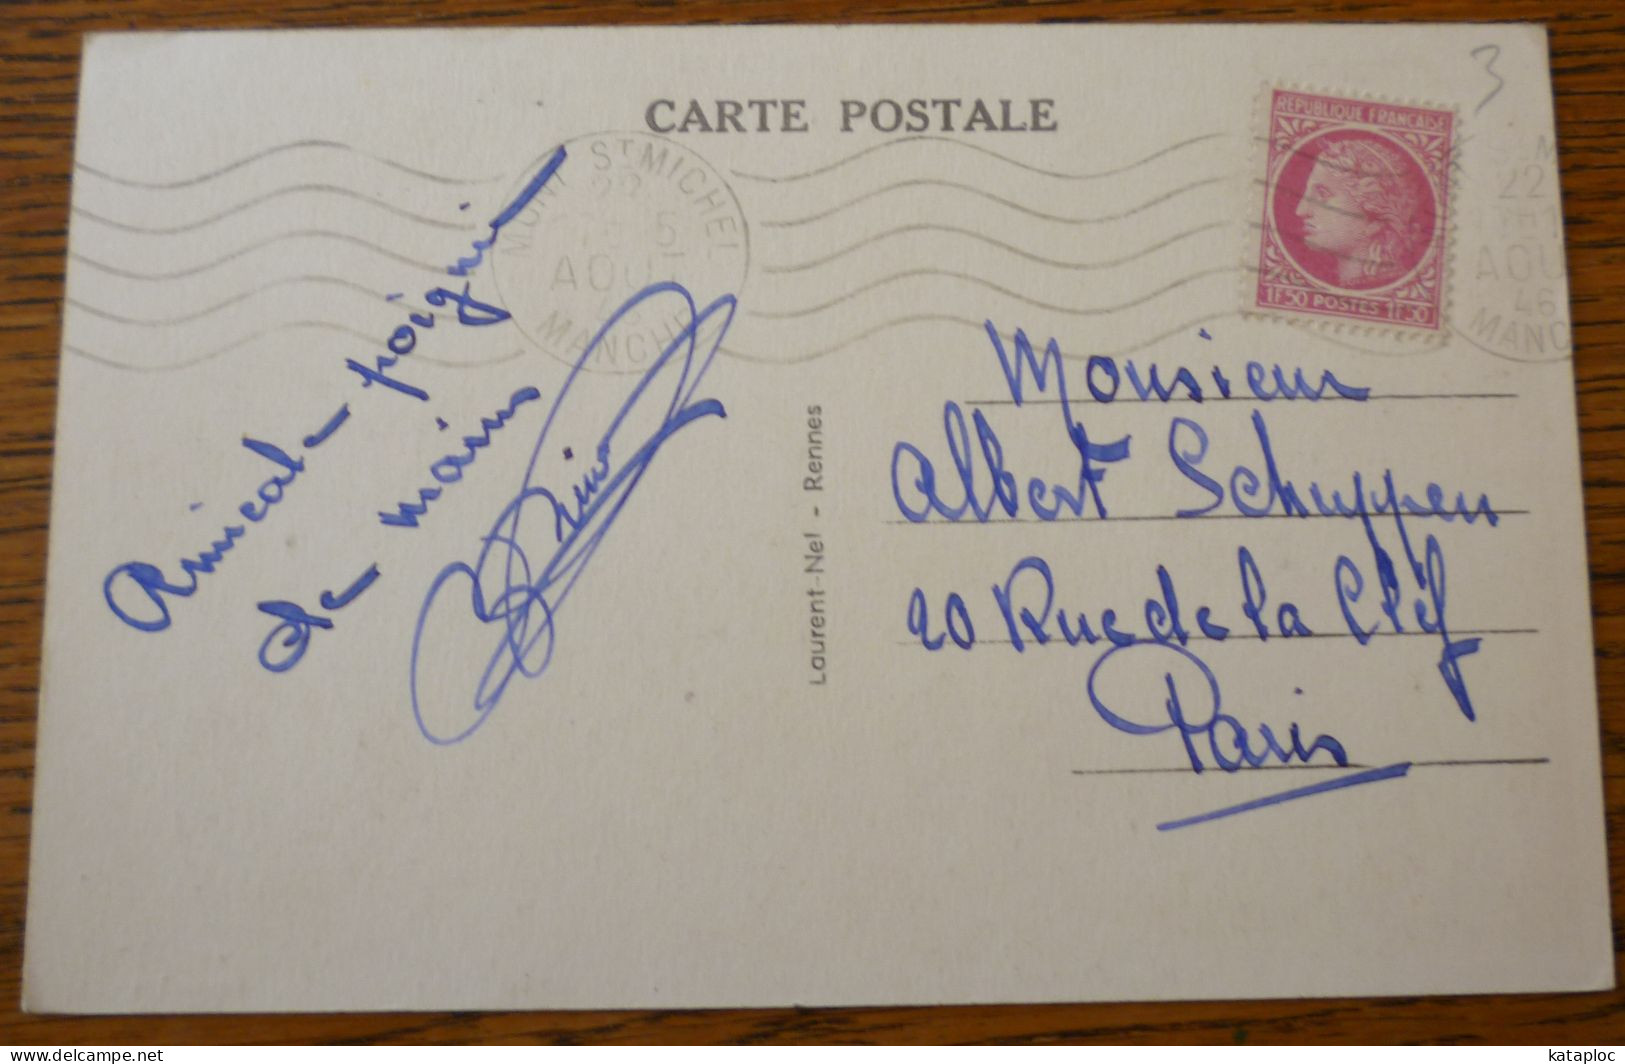 CARTE POSTALE
3
REPUBLIQUE FRANCAISE
1F50 POSTES 1F50
MONT ST MICHEL
22
5
AOUT
MANCHE
22
AOU
46
MANC
Amicale poignée
de main
Laurent-Nel - Rennes
Monsieur
Albert Schuppen
20 Rue de la Clef
Paris
delcampe.net
kataploc